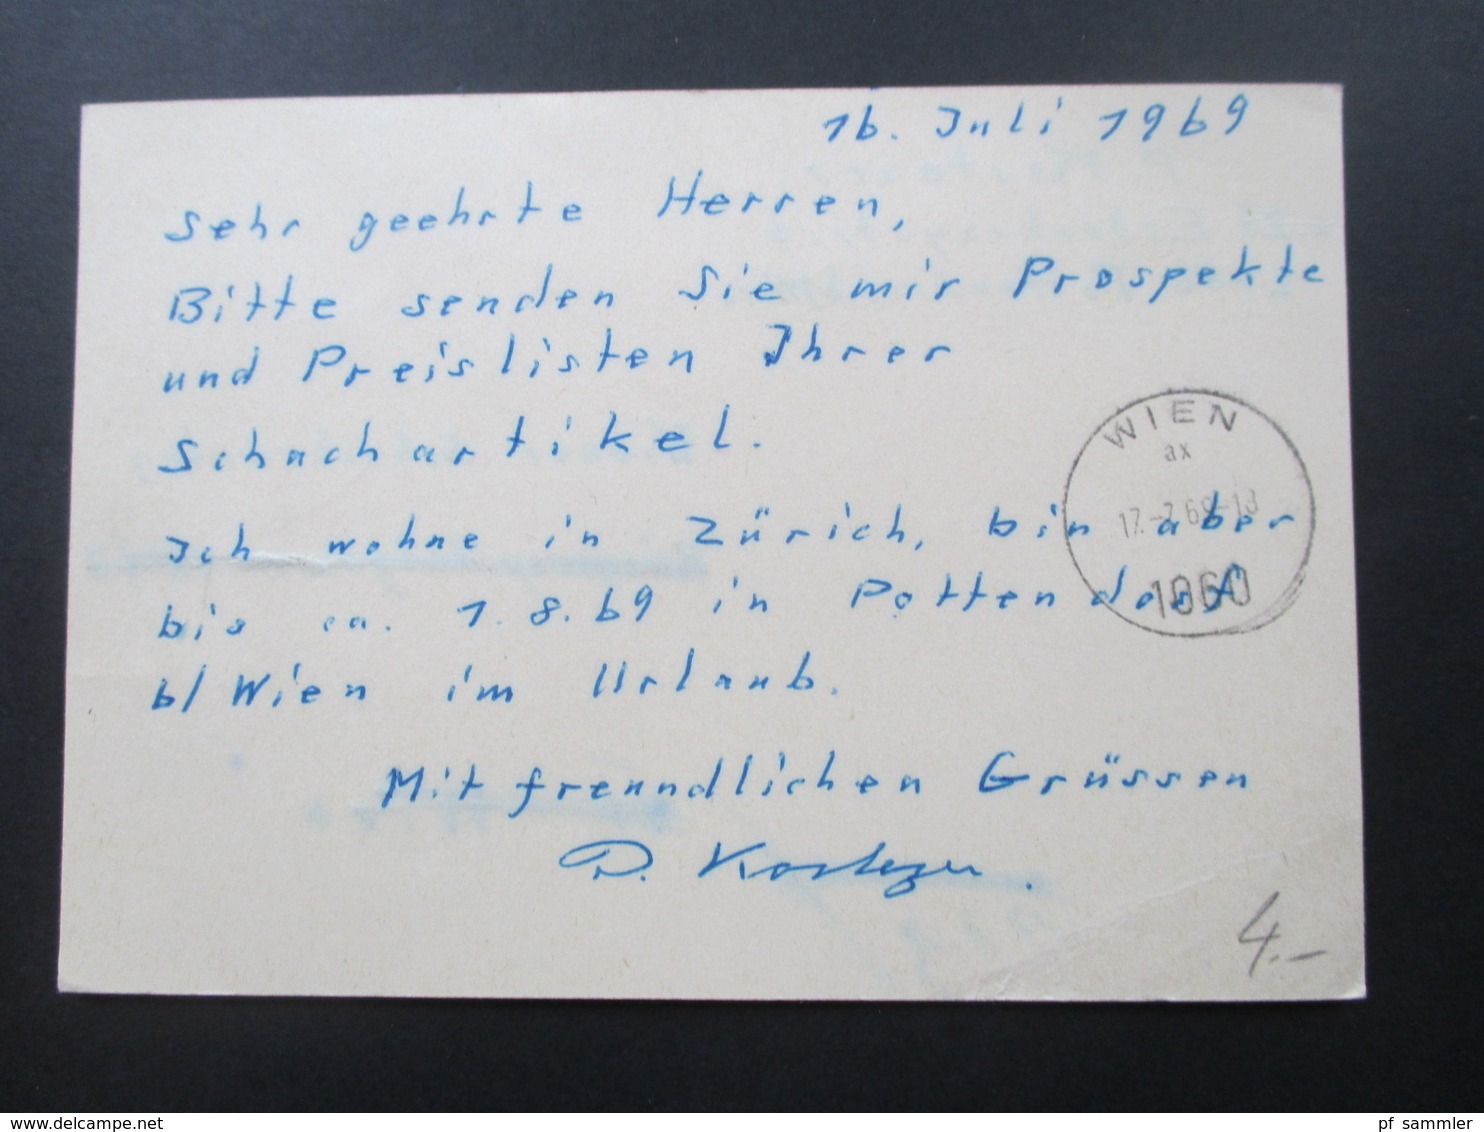 16. Juli 1969
Sehr geehrte Herren,
Bitte senden Sie mir Prospekte
und Preislisten Ihrer
Schachartikel.
Ich wohne in Zürich, bin aber
bis ca. 1.8.69 in Pottendorf
b/Wien im Urlaub.
Mit freundlichen Grüssen
D.
WIEN
ax
17.-7.69-18
1060
4.-
© delcampe.net
pf_sammler